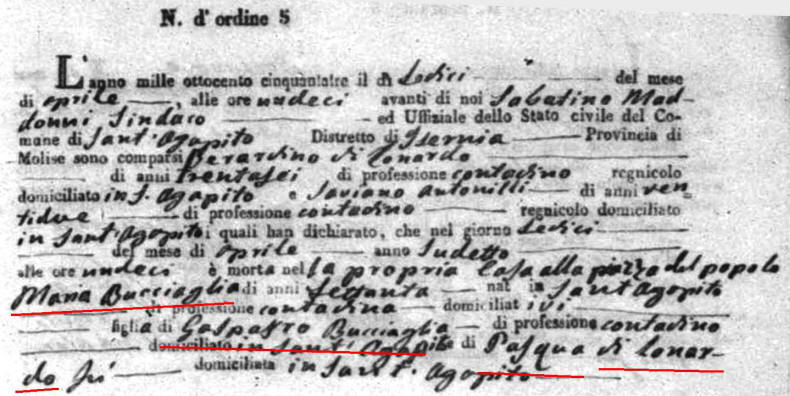 N. d' ordine 5
L'anno mille ottocento cinquantatre il dì Sedici del mese
di aprile, alle ore undeci avanti di noi Sabatino Mad-
donni Sindaco ed Uffiziale dello Stato civile del Co-
mune di Sant'Agapito Distretto di Isernia Provincia di
Molise sono comparsi Berardino di Lonardo
di anni trentasei di professione contadino regnicolo
domiciliato in S. Agapito e Saviano Antonilli di anni ven-
tidue di professione contadino regnicolo domiciliato
in Sant'Agapito i quali han dichiarato, che nel giorno Sedici
del mese di aprile anno Sudetto
alle ore undeci è morta nel la propria Casa alla piazza del popolo
Maria Bucciaglia di anni Settanta nat in Sant'Agapito
di professione contadina domiciliat ivi
figlia di Gaspazzo Bucciaglia di professione contadino
domiciliato in Sant'Agapito di Pasqua di Lonar-
do domiciliata in Sant'Agapito